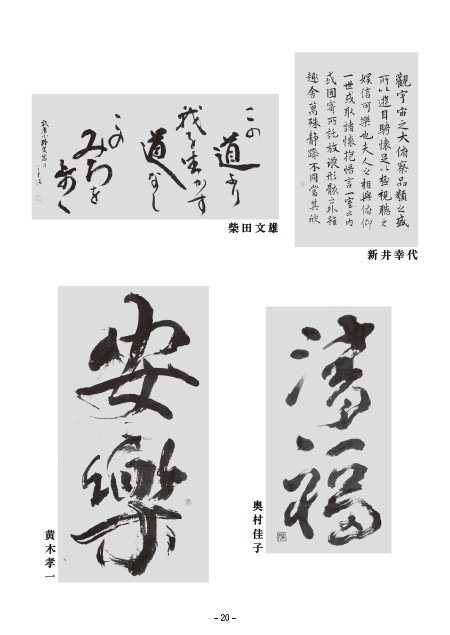 この
道より
我を生かす
道なし
この
みちを
歩く
柴田文雄
觀宇宙之大俯察品類之盛
所以遊目騁懷足以極視聽之
娛信可樂也夫人之相與俯仰
一世或取諸懷抱悟言一室之內
或因寄所託放浪形骸之外雖
趣舍萬殊靜躁不同當其欣
新井幸代
安樂
黄木孝一
福
奥村佳子
- 20 -